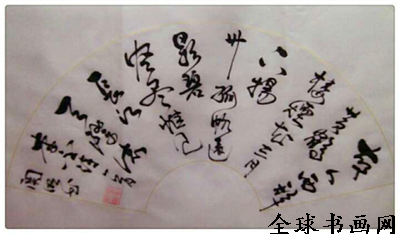 故人西辞
黄鹤
楼烟花三月
下扬
州孤帆远
影碧
空尽惟见
长江
天际流
李白诗一首
全球书画网